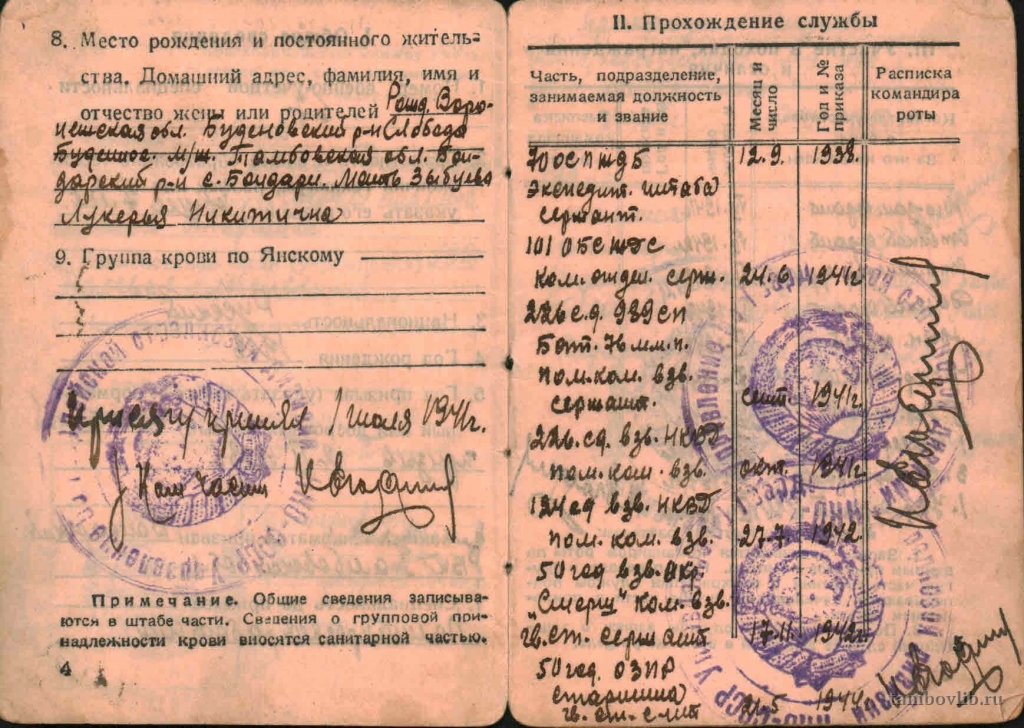 8. Место рождения и постоянного житель-
ства. Домашний адрес, фамилия, имя и
отчество жены или родителей Рожд. Воро-
нежская обл. Буденовский р-н Слобода
Буденное. М/ж. Тамбовская обл. Бон-
дарский р-н с. Бондари. Мать Зыбцева
Лукерья Никитична
9. Группа крови по Янскому
Присягу принял 1 июля 1941г.
Ком части
Примечание. Общие сведения записыва-
ются в штабе части. Сведения о групповой при-
надлежности крови вносятся санитарной частью.
4
II. Прохождение службы
Часть, подразделение,
занимаемая должность
и звание
Месяц и
число
Год и №
приказа
Расписка
командира
роты
70 ОСПЖДБ 12.9. 1938.
Экспедит. штаба
сержант.
101 ОБСЖДС
ком. отдел. серж. 24.6 1941г.
226 с.д. 989 СП
Бат. 76 мм. п.
пом. ком. взв.
сержант. сент. 1941г.
226. сд. взв. НКВД
пом. ком. взв. окт. 1941г.
124 сд взв. НКВД
пом. ком. взв. 27.7. 1942.
50 гсд взв. Окр.
"Смерш" ком. взв.
гв. ст. сержант 17.11. 1942г.
50 гсд. ОЗПР
старшина
гв. ст. с-нт 21.5 1944г.
tambovlib.ru